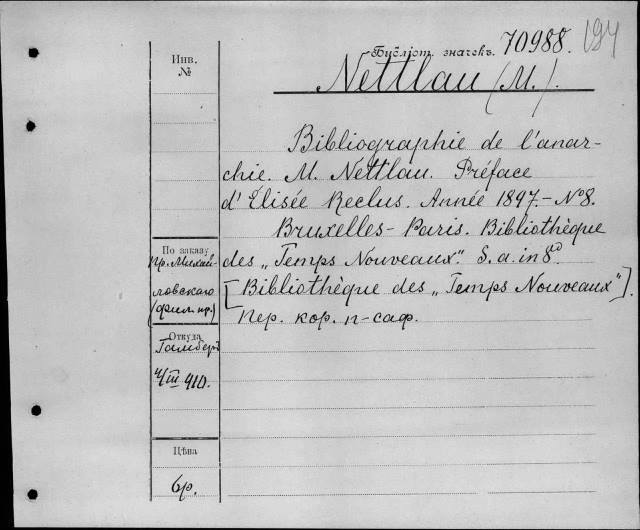 Библіот. значекъ. 70988. 194
Nettlau (M.).
Инв.
№
Bibliographie de l'anar-
chie. M. Nettlau. Préface
d'Élisée Reclus. Année 1897.- №8.
Bruxelles- Paris. Bibliothèque
des „Temps Nouveaux". S. a. in 8º.
[Bibliothèque des „Temps Nouveaux"].
пер. кор. п-саф.
По заказу
пр. Михай-
ловскаго
(фил. пр.)
Откуда
Гамберъ
4/III 910.
Цѣна
6р.